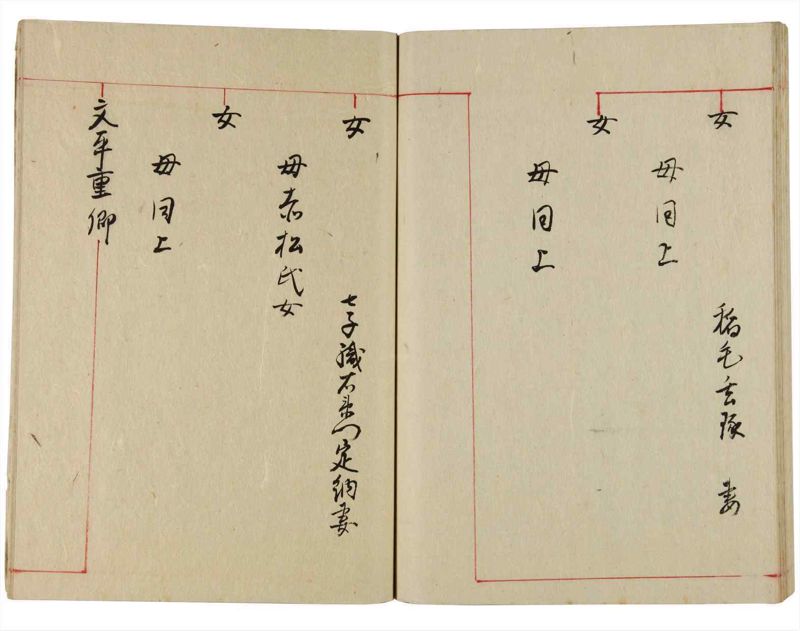 女
母同上
稲毛玄琢 妻
女
母同上
女
母赤松氏女
七子織右衛門定綱妻
女
母同上
文平重卿